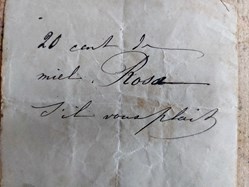 20 cent de
miel. Rosa
s'il vous plait